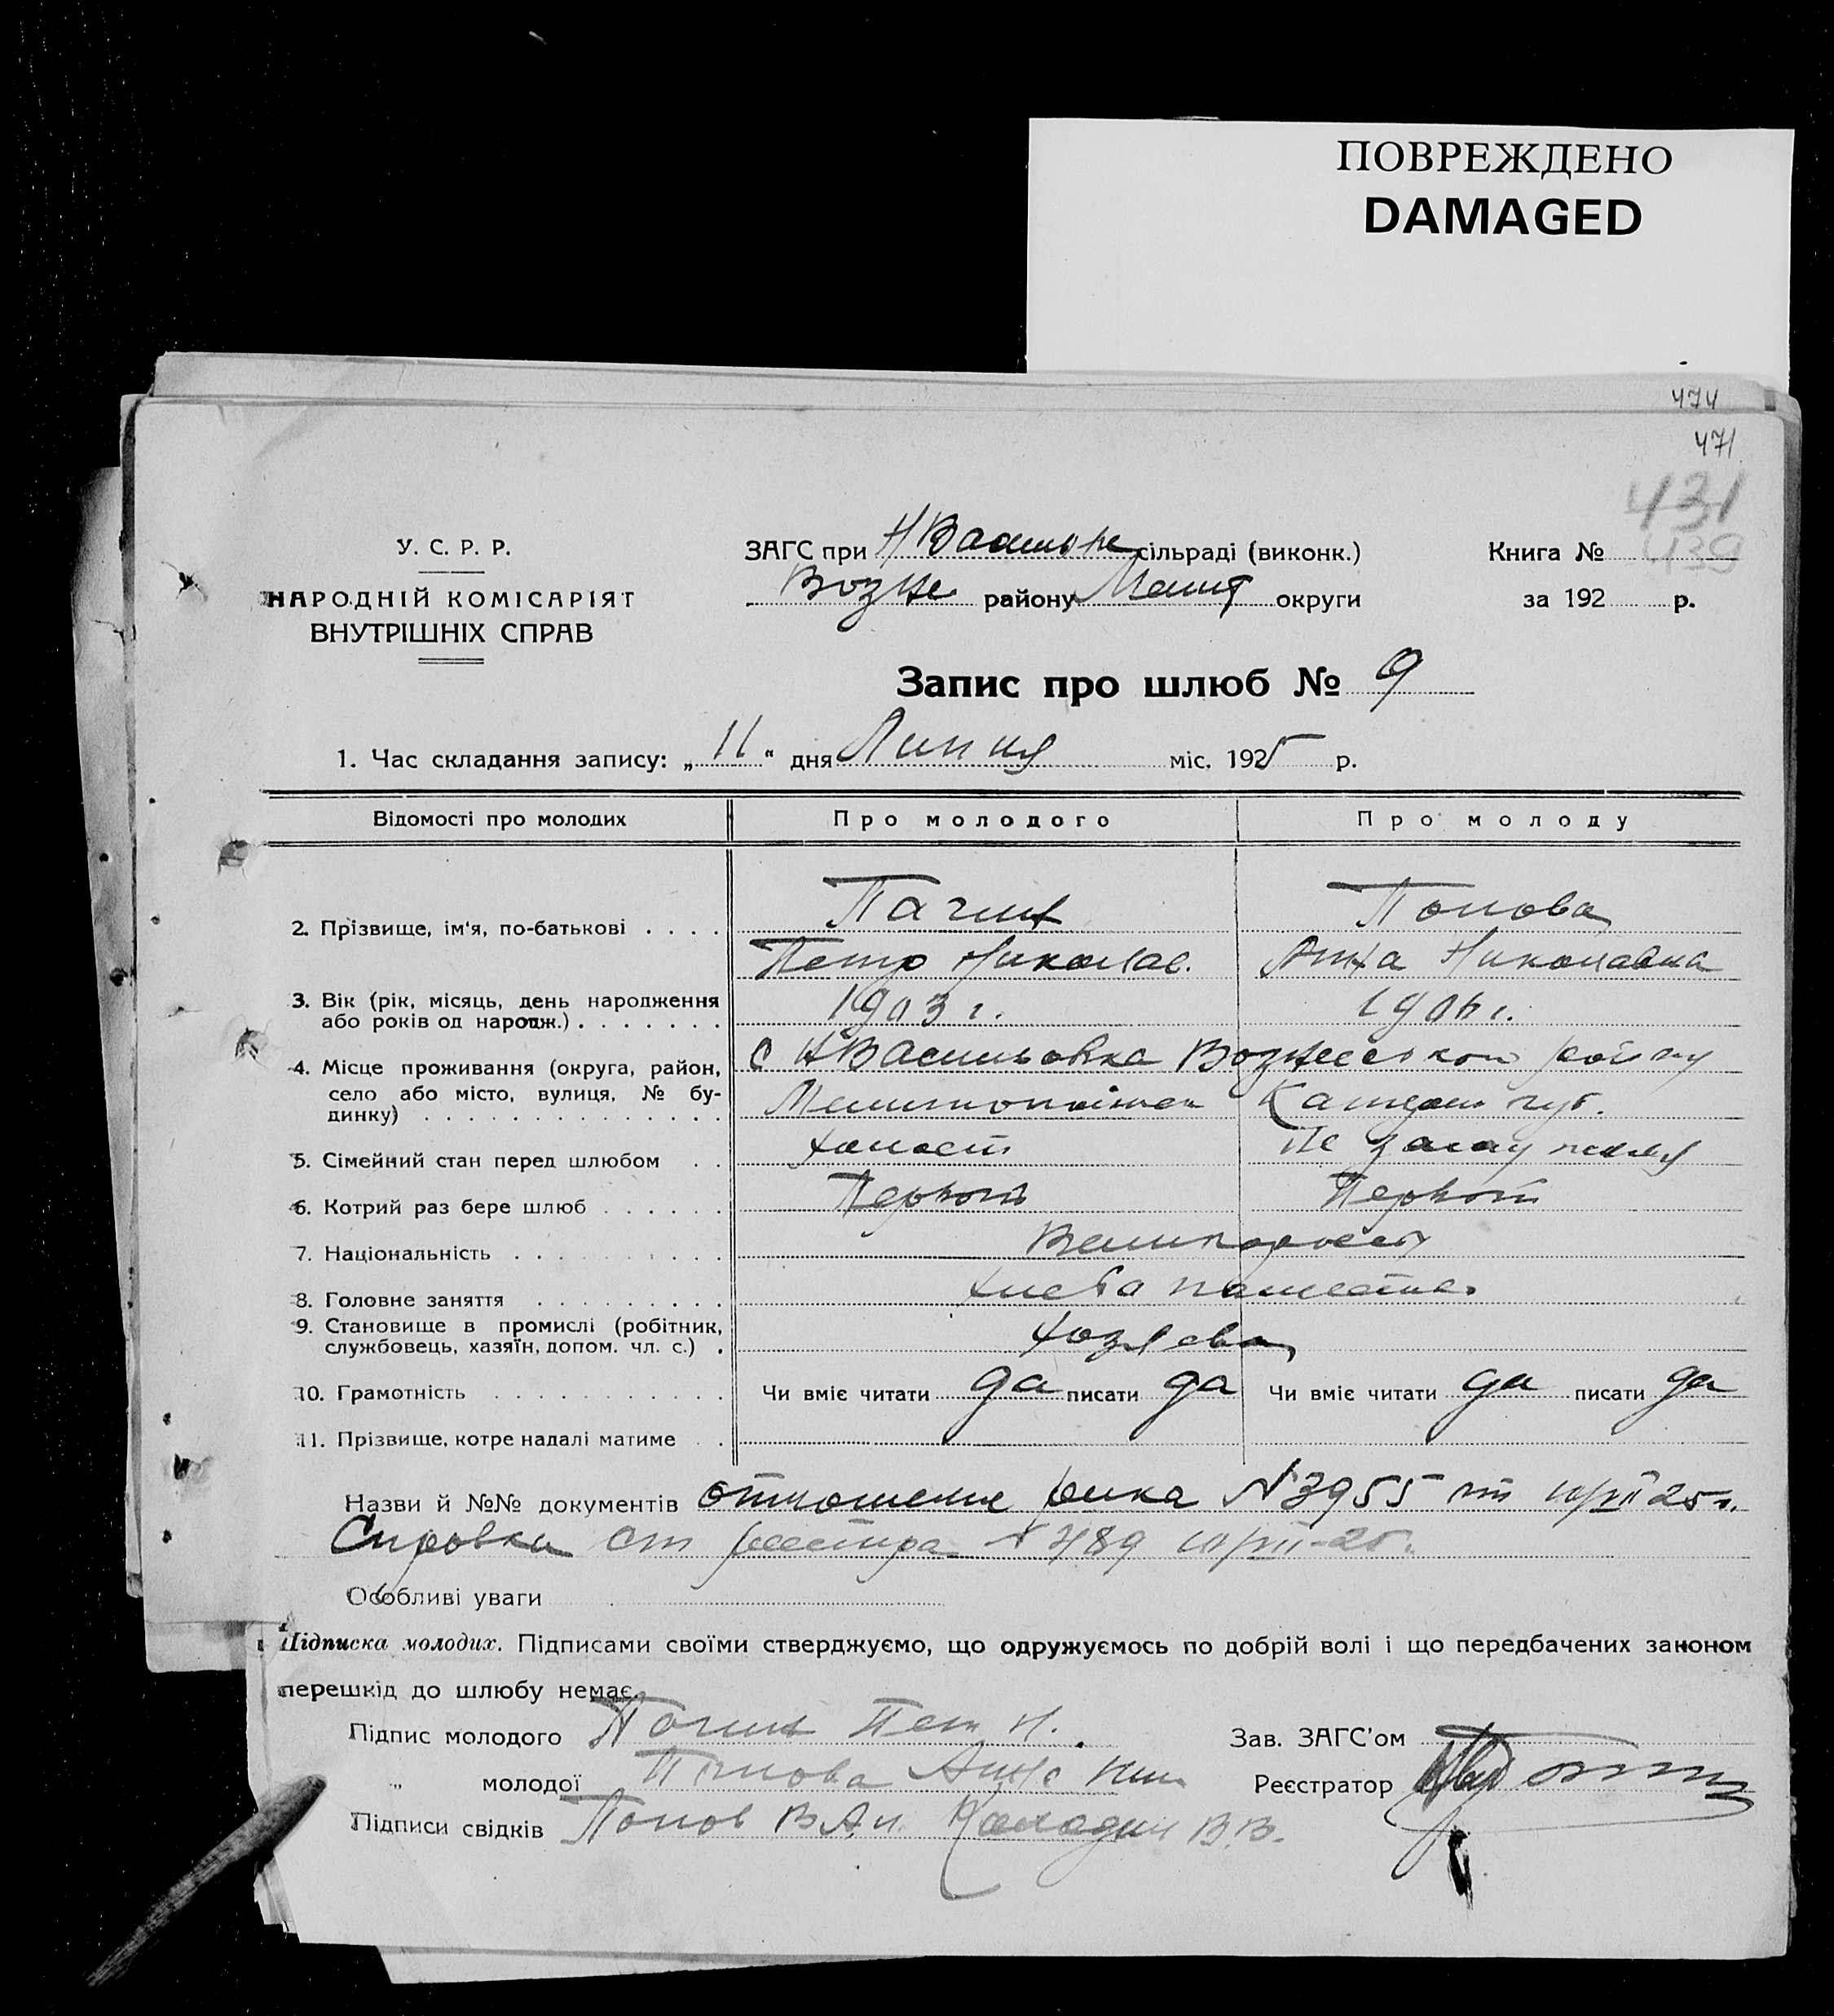 ПОВРЕЖДЕНО
DAMAGED
474
471
431
У. С. Р. Р.
НАРОДНІЙ КОМІСАРІЯТ
ВНУТРІШНІХ СПРАВ
ЗАГС при сільраді (виконк.)
Возне району Мелит округи
Книга №
за 192 р.
Запис про шлюб № 9
1. Час складання запису: „11“ дня Липня міс. 1925 р.
Відомості про молодих Про молодого Про молоду
2. Прізвище, ім'я, по-батькові . . . . Пагин Попова
Петр Николае. Анна Николавна
3. Вік (рік, місяць, день народження
або років од народж.) . . . . . . . 1903 г. 1906 г.
4. Місце проживання (округа, район, с НВасильовка Вознесеськой району
село або місто, вулиця, № бу-
динку) . . . . . . . . . . . . . Катер губ.
5. Сімейний стан перед шлюбом . . холост Не
6. Котрий раз бере шлюб . . . . . . Первой Первой
7. Національність . . . . . . . . Великоросы
8. Головне заняття . . . . . . . . . хлебопашество
9. Становище в промислі (робітник,
службовець, хазяїн, допом. чл. с.) . хозяева
10. Грамотність . . . . . . . . . . . Чи вміє читати да писати да Чи вміє читати да писати да
11. Прізвище, котре надалі матиме . .
Назви й №№ документів отношение рика №3955 от 10/VII 25 г.
Справка от реестра № 489 10/VII-25.
Особливі уваги
Підписка молодих. Підписами своїми стверджуємо, що одружуємось по добрій волі і що передбачених законом
перешкід до шлюбу немає.
Підпис молодого Пагин Пет Н.
Зав. ЗАГС'ом
„ молодої Попова Анна Ник
Реєстратор
Підписи свідків Попов В.А. Колодин В.В.